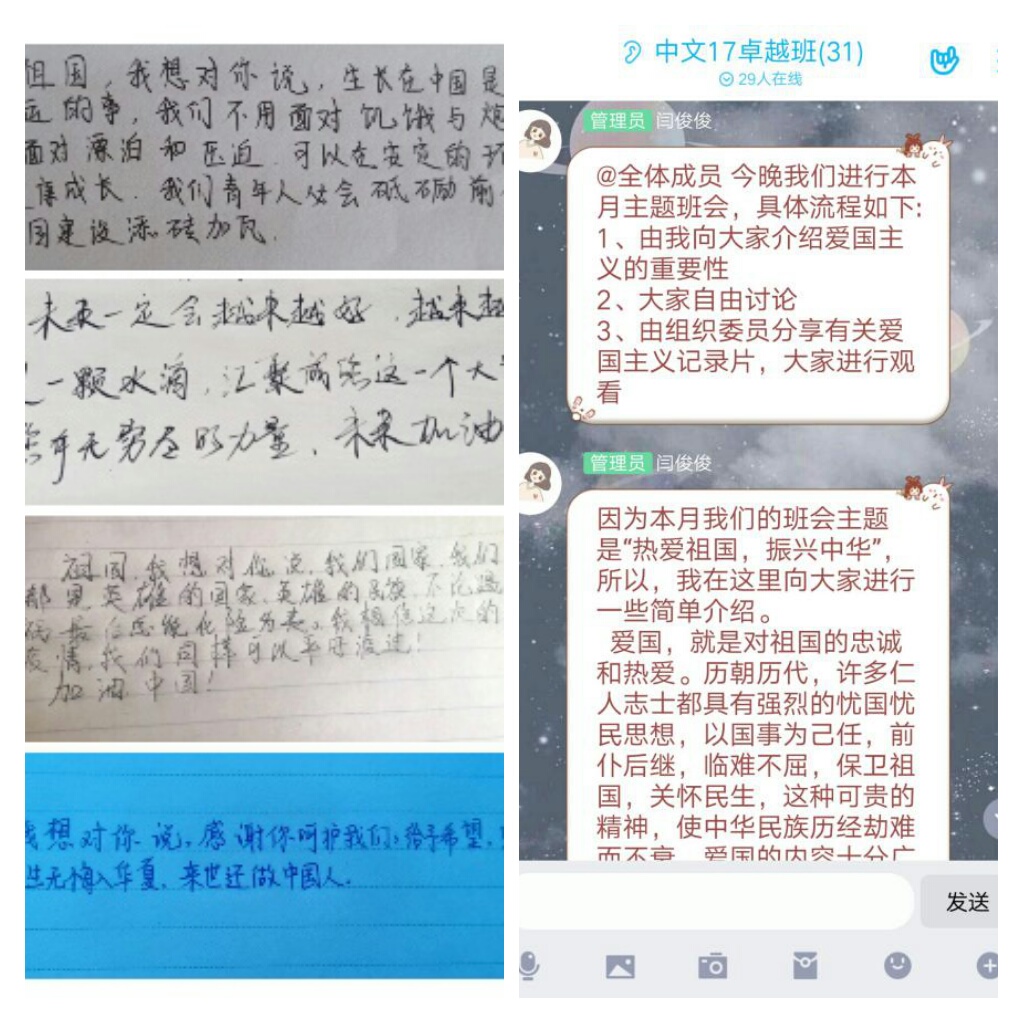 祖国，我想对你说，生长在中国是
的事，我们不用面对饥饿与炮
面对漂泊和压迫，可以在安定的环
康成长．我们青年人必会砥砺前
国建设添砖加瓦．
未来一定会越来越好，越来越
一颗水滴，汇聚成您这一个大
无穷尽的力量，未来加油
祖国，我想对你说，我们国家，我们
都是英雄的国家，英雄的民族，不论遇
最后总能化险为夷。我相信这次的
疫情，我们同样可以平安渡过！
加油中国！
我想对你说，感谢你呵护我们，给予希望，
此生无悔入华夏，来世还做中国人．
中文17卓越班(31)
29人在线
管理员 闫俊俊
@全体成员 今晚我们进行本
月主题班会，具体流程如下:
1、由我向大家介绍爱国主
义的重要性
2、大家自由讨论
3、由组织委员分享有关爱
国主义记录片，大家进行观
看
管理员 闫俊俊
因为本月我们的班会主题
是“热爱祖国，振兴中华”，
所以，我在这里向大家进行
一些简单介绍。
爱国，就是对祖国的忠诚
和热爱。历朝历代，许多仁
人志士都具有强烈的忧国忧
民思想，以国事为己任，前
仆后继，临难不屈，保卫祖
国，关怀民生，这种可贵的
精神，使中华民族历经劫难
而不衰。爱国的内容十分广
发送